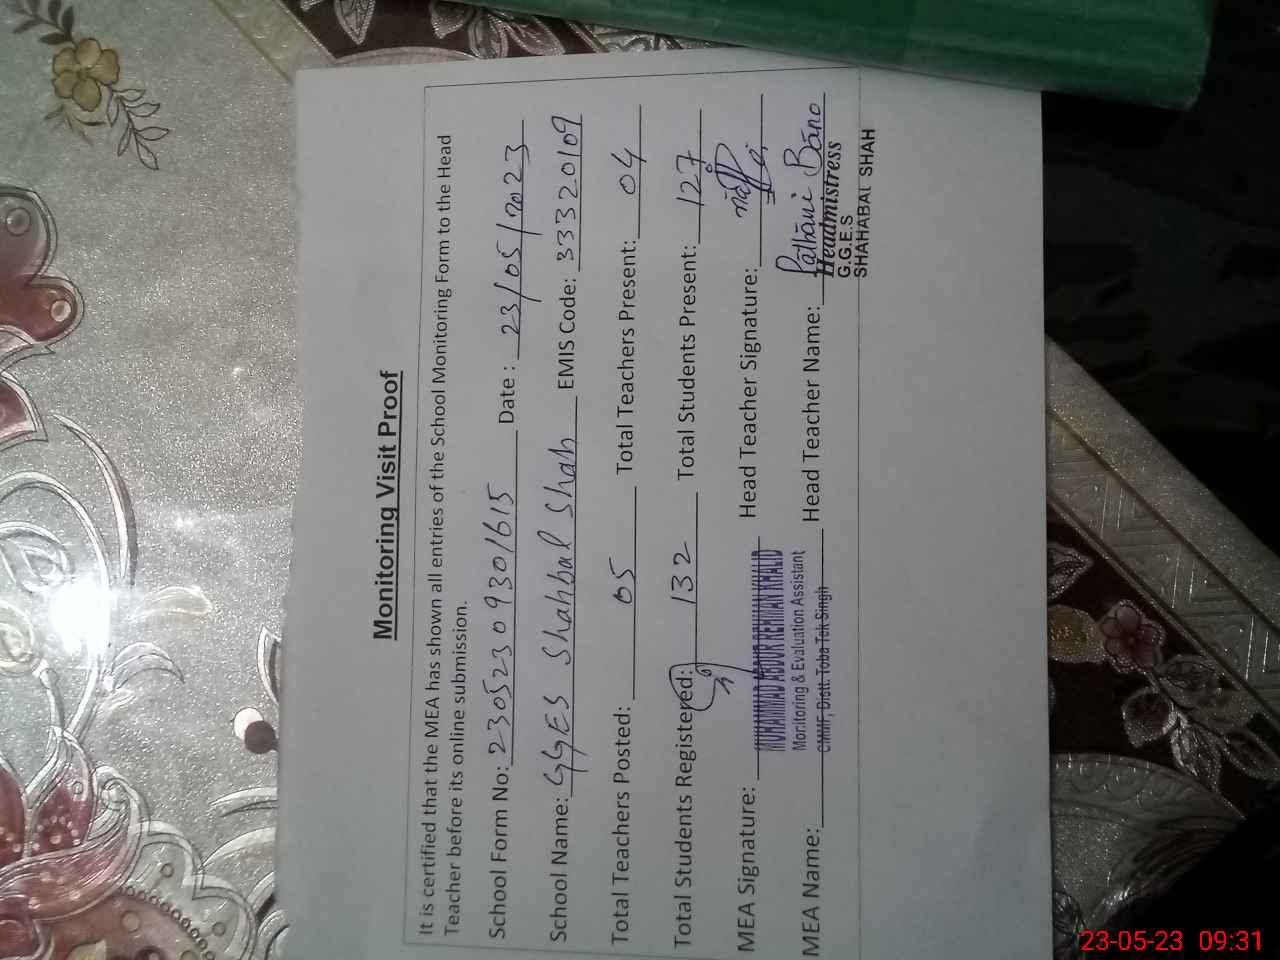 Monitoring Visit Proof
It is certified that the MEA has shown all entries of the School Monitoring Form to the Head
Teacher before its online submission.
School Form No: 23052309301615 Date : 23/05/2023
School Name: GGES Shahbal Shah EMIS Code: 33320109
Total Teachers Posted: 05 Total Teachers Present: 04
Total Students Registered: 132 Total Students Present: 127
MEA Signature: Head Teacher Signature:
MUHAMMAD ABDUR REHMAN KHALID
Monitoring & Evaluation Assistant
CMMF, Distt. Toba Tek Singh
MEA Name: Head Teacher Name: Pathani Bano
Headmistress
G.G.E.S
SHAHABAL SHAH
23-05-23 09:31